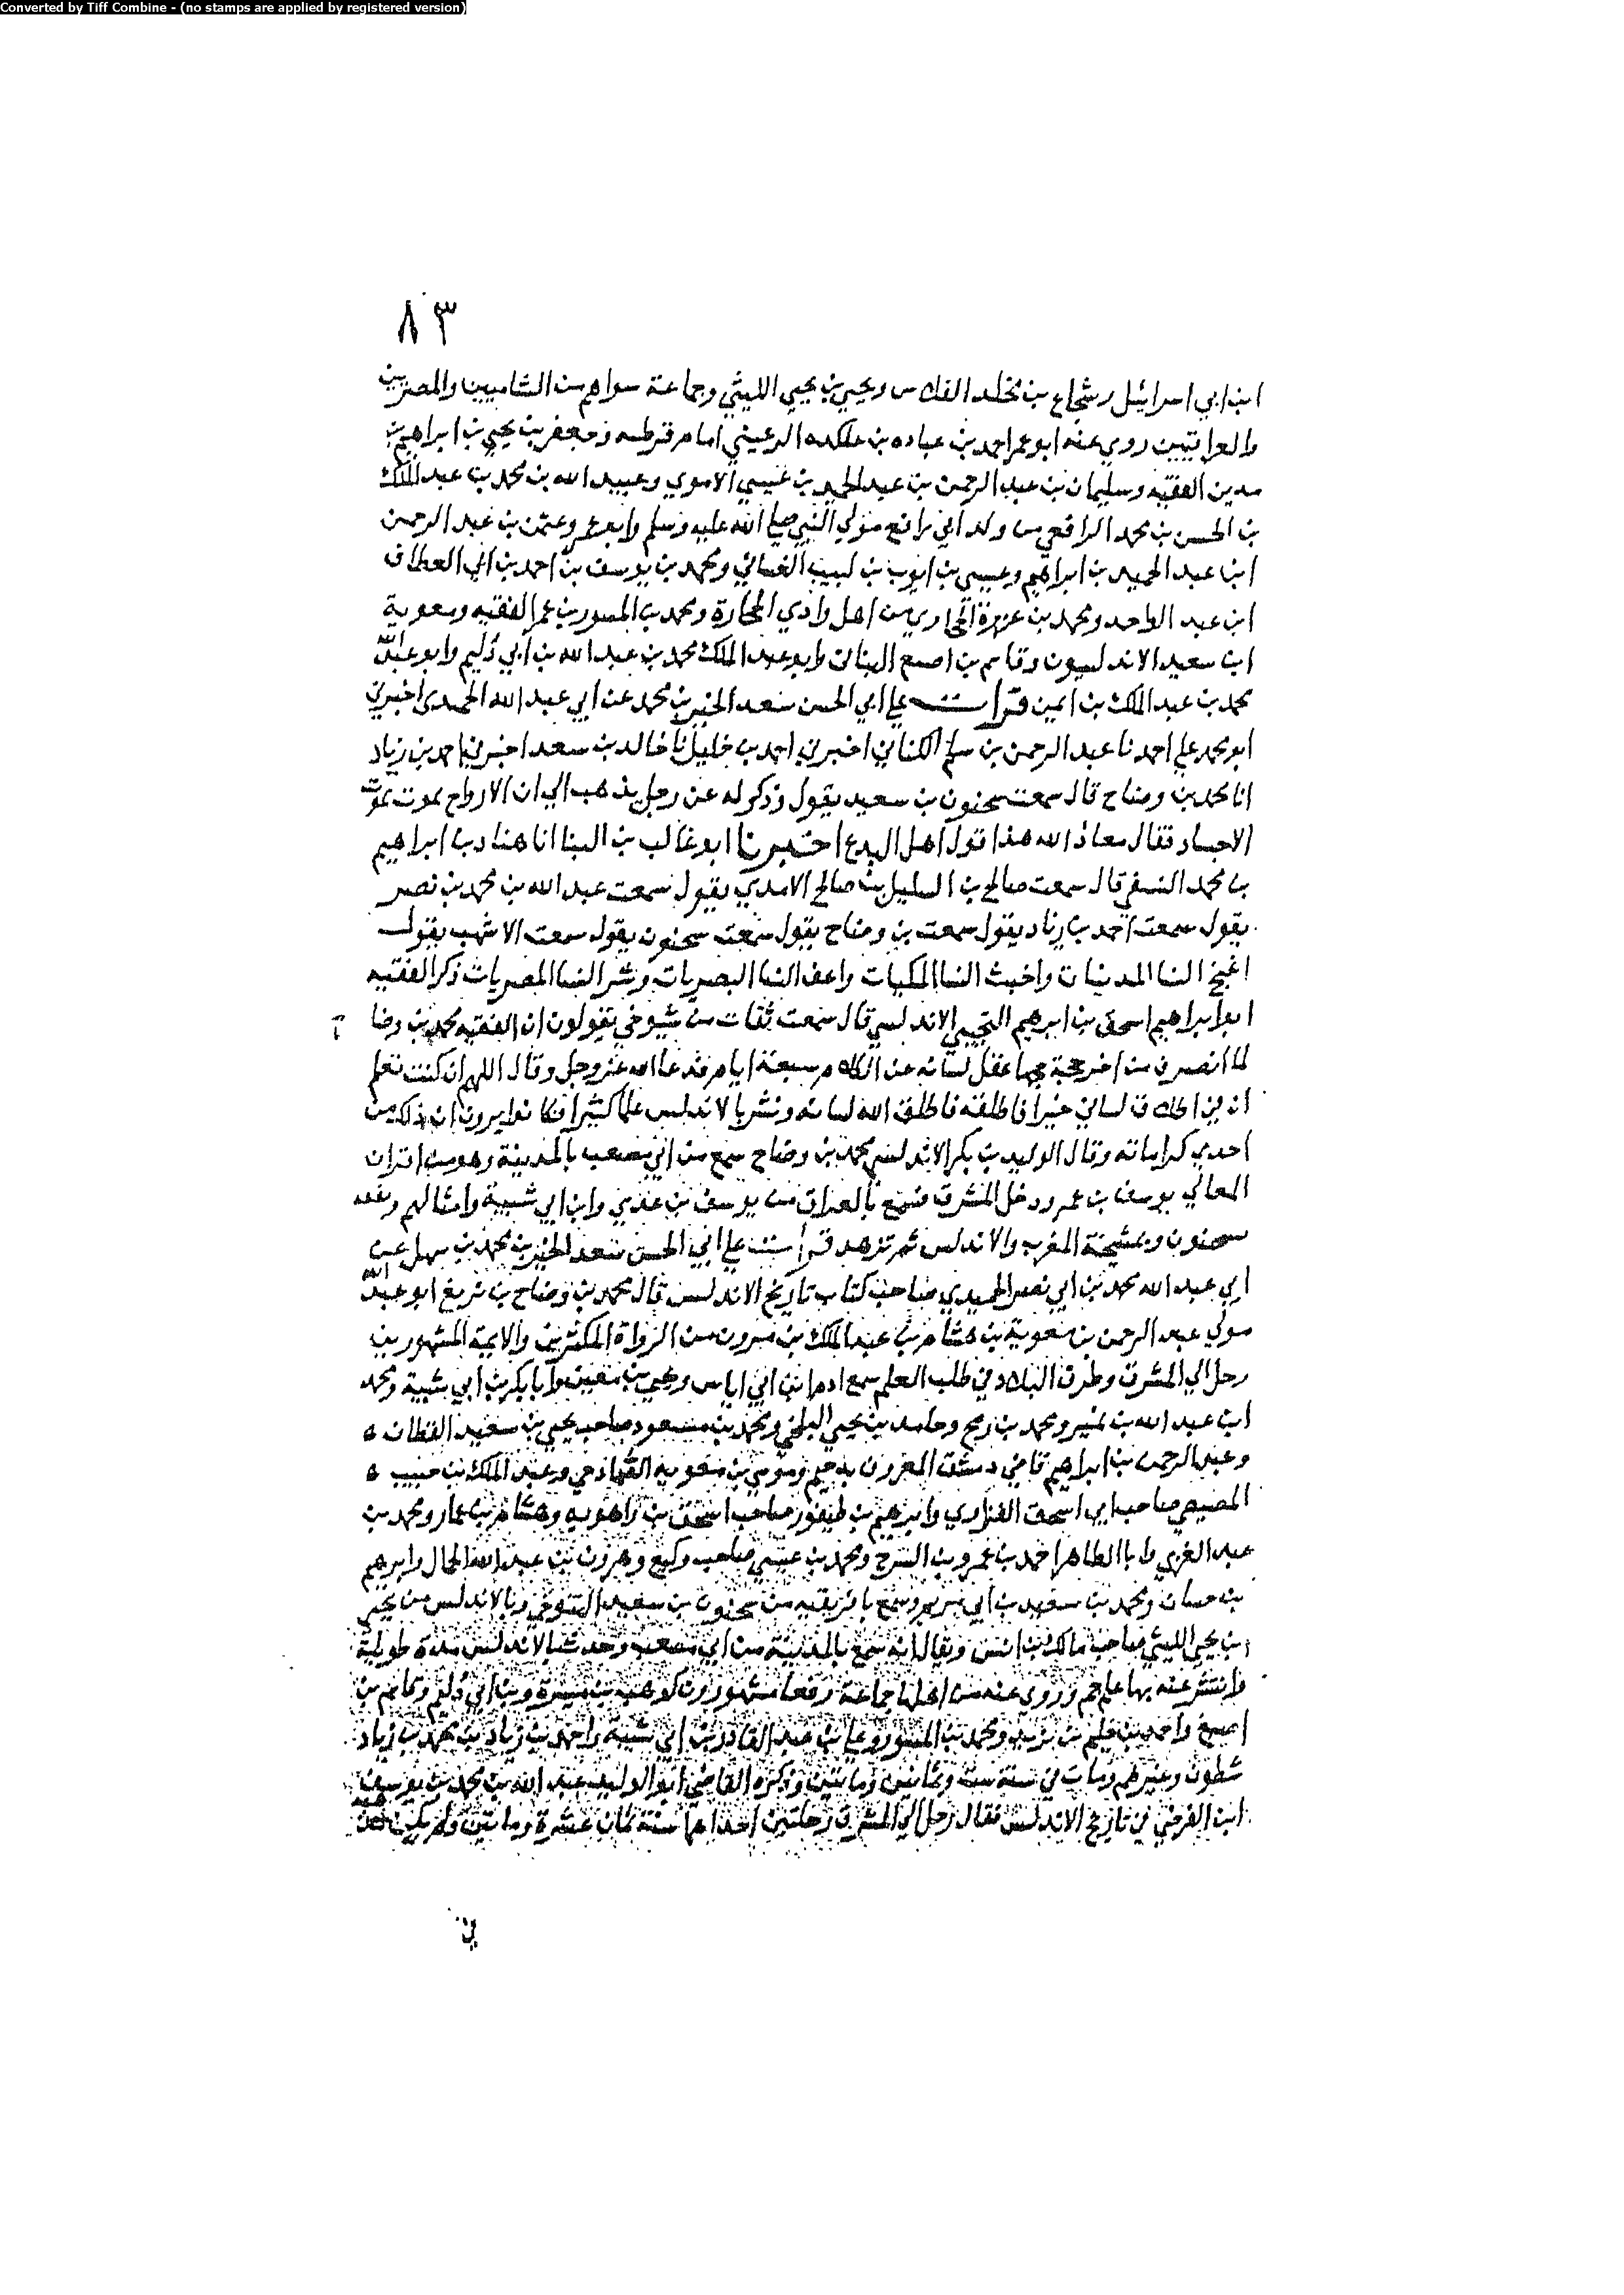 Converted by Tiff Combine - (no stamps are applied by registered version)
٨٣
ابن ابي اسرائيل وشجاع بن مخلد الفلاس ويحيى بن يحيى الليثي وجماعة سواهم من الشاميين والمصريين
والعراقيين روي عنه ابو عمر احمد بن عباده بن علكده الرعيني امام قرطبه وجعفر بن يحيى بن ابراهيم بن
مدين الفقيه وسليمان بن عبد الرحمن بن عبد الحميد بن عيسي الاموي وعبيد الله بن محمد بن عبد الملك
بن الحسن بن محمد الرافعي من ولد ابي رافع مولي النبي صلي الله عليه وسلم وابو عمرو عثمن بن عبد الرحمن
ابن عبد الحميد بن ابراهيم وعيسي بن ايوب بن لبيب الغساني ومحمد بن يوسف بن احمد بن ابي العطاف
ابن عبد الواحد ومحمد بن عزرة الحجاري من اهل وادي الحجارة ومحمد بن المسور بن عمر الفقيه ومعوية
ابن سعيد الاندلسيون وقاسم بن اصبع البناني وابو عبد الملك محمد بن عبد الله بن ابي دليم وابو عبد الله
محمد بن عبد الملك بن ايمن قرات علي ابي الحسن سعد الخير بن محمد عن ابي عبد الله الحميدي اخبرني
ابو محمد علي احمد نا عبد الرحمن بن سلم الكناني اخبرني احمد بن خليل نا خالد بن سعد اخبرني احمد بن زياد
انا محمد بن وضاح قال سمعت سحنون بن سعيد يقول وذكر له عن رجل يذهب الي ان الارواح تموت بموت
الاجساد فقال معاذ الله هذا قول اهل البدع اخبرنا ابو غالب بن البنا انا هناد بن ابراهيم
بن محمد النسفي قال سمعت صالح بن السليل بن صالح الامدي يقول سمعت عبد الله بن محمد بن نصر
يقول سمعت احمد بن زياد يقول سمعت بن وضاح يقول سمعت سحنون يقول سمعت الاشهب يقول
اغنج النسا المدنيات واخبث النسا المكيات واعف النسا البصريات وشر النسا المصريات ذكر الفقيه
ابو ابراهيم اسحق بن ابرهيم التجيبي الاندلسي قال سمعت ثقات من شيوخي يقولون ان الفقيه محمد بن وضا
لما انصرف من اخر حجة حجها عقل لسانه عن الكلام سبعة ايام فدعا الله عز وجل وقال اللهم ان كنت تعلم
ان في اطلاق لساني خيرا فاطلقه فاطلق الله لسانه ونشر بالاندلس علما كثيرا فكانوا يرون ان ذلك من
احدي كراماته وقال الوليد بن بكر الاندلسي محمد بن وضاح سمع من ابي مصعب بالمدينة وهو من اقران
المعالي يوسف بن عمر ودخل المشرق فسمع بالعراق من يوسف بن عدي وابن ابي شيبة وامثالهم
سحنون ومشيخة المغرب والاندلس ثم تزهد قرأت علي ابي الحسن سعد الخير بن محمد بن سهل عن
ابي عبد الله محمد بن ابي نصر الحميدي صاحب كتاب تاريخ الاندلس قال محمد بن وضاح بن بزيع ابو عبد الله
مولي عبد الرحمن بن معوية بن هشام بن عبد الملك بن مرون من الرواة المكثرين والايمة المشهورين
رحل الي المشرق وطرق البلاد في طلب العلم سمع ادم بن ابي اياس ويحيي بن معين وابا بكر بن ابي شيبة ومحمد
ابن عبد الله بن نمير ومحمد بن رمح وحامد بن يحيي البلخي ومحمد بن مسعود صاحب يحيي بن سعيد القطان ه
وعبد الرحمن بن ابراهيم قاضي دمشق المعروف بدحيم وموسي بن معوية الصمادحي وعبد الملك بن حبيب ه
المصيصي صاحب ابي اسحق الفزاري وابرهيم بن طيفور صاحب اسحق بن راهويه وهشام بن عمار ومحمد بن
عبد العزي وابا الطاهر احمد بن عمرو بن السرح ومحمد بن عيسي صاحب وكيع وهرون بن عبد الله الحمال وابرهيم
بن حسان ومحمد بن سعيد بن ابي مريم وسمع بافريقيه من سحنون بن سعيد التنوخي وبالاندلس من يحيي
ابن يحيي الليثي صاحب مالك بن انس ويقال انه سمع بالمدينة من ابي مصعب وحدث بالاندلس مدة طويلة
وانتشر عنه بها علم جم وروي عنه من اهلها جماعة رفعا مشهورون كوهب بن ميسرة وبن ابي دليم وقاسم بن
اصبغ واحمد بن بن يزيد ومحمد بن المسور وعلي بن عبد القادر بن ابي شيبة واحمد بن زياد بن محمد بن زياد
شطون وغيرهم ومات في سنة ست وثمانين ومايتين وذكره القاضي ابو الوليد عبد الله بن محمد بن يوسف
ابن الفرضي في تاريخ الاندلس فقال رحل الي المشرق رحلتين احداهما سنة ثمان عشرة ومايتين ولم يكن